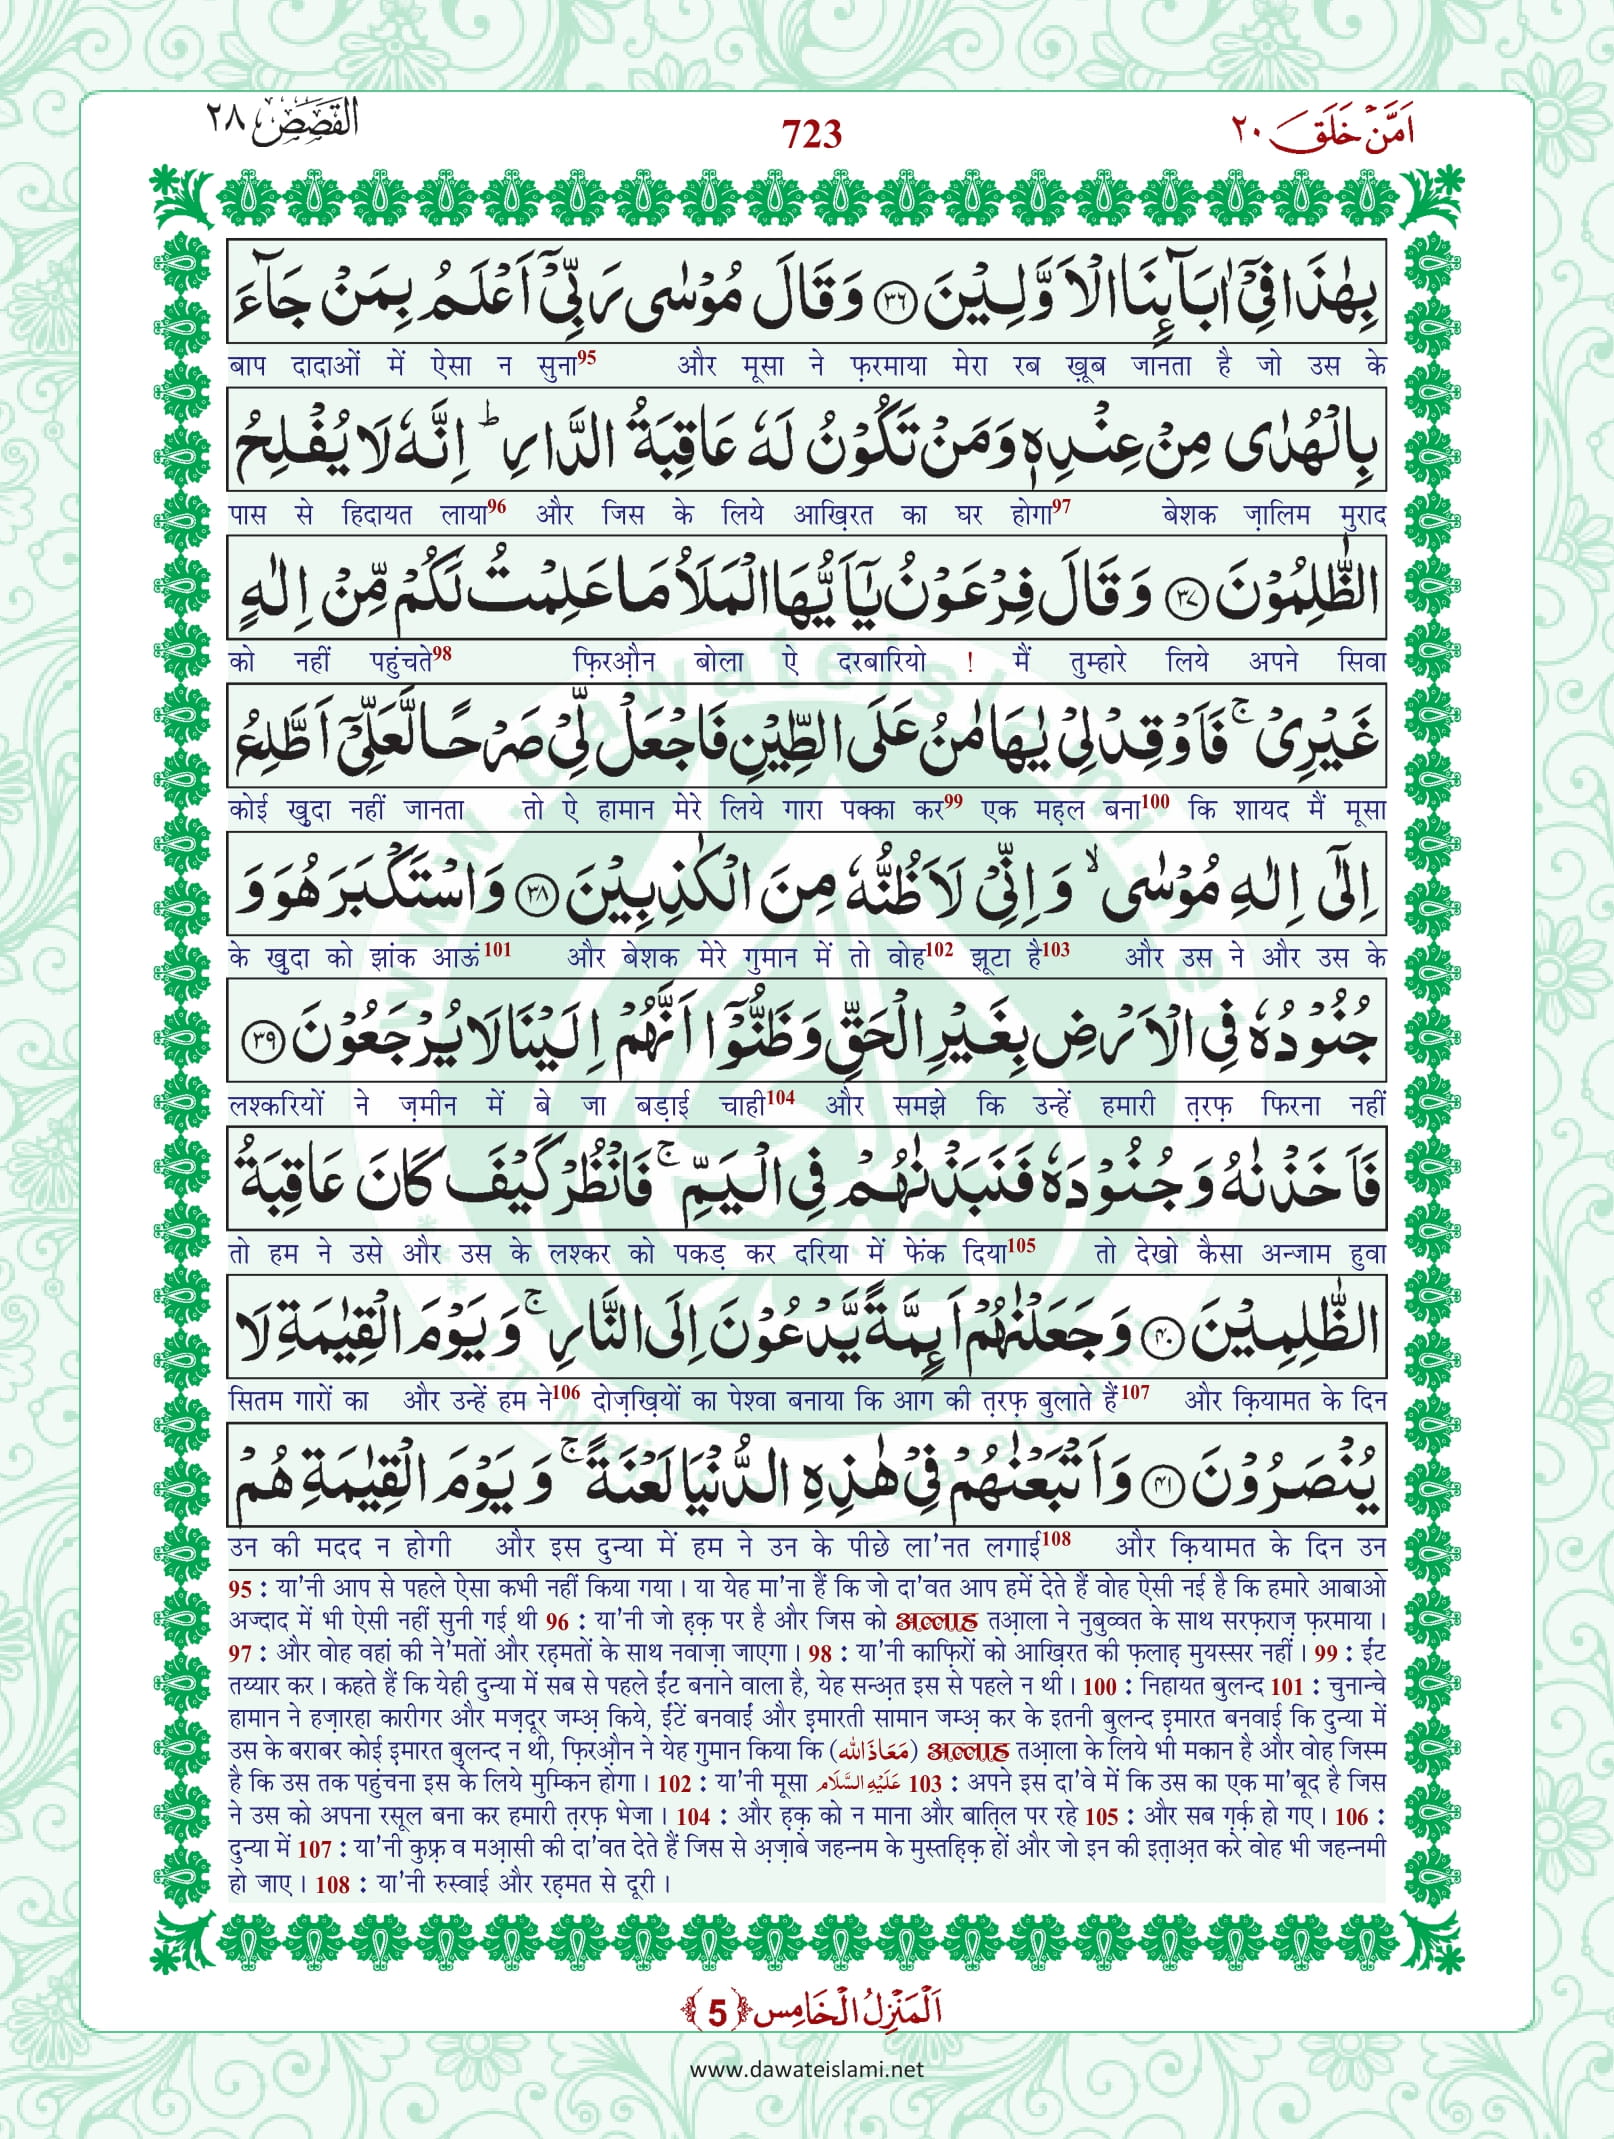 القصص ٢٨
723
اَمَّنْ خَلَقَ ٢٠
بِهٰذَا فِیْۤ اٰبَآىٕنَا الْاَوَّلِیْنَ ﴿۳۶﴾ وَ قَالَ مُوْسٰى رَبِّیْۤ اَعْلَمُ بِمَنْ جَآءَ
बाप दादाओं में ऐसा न सुना95 और मूसा ने फ़रमाया मेरा रब ख़ूब जानता है जो उस के
بِالْهُدٰى مِنْ عِنْدِهٖ وَ مَنْ تَكُوْنُ لَهٗ عَاقِبَةُ الدَّارِؕ اِنَّهٗ لَا یُفْلِحُ
पास से हिदायत लाया96 और जिस के लिये आख़िरत का घर होगा97 बेशक ज़ालिम मुराद
الظّٰلِمُوْنَ ﴿۳۷﴾ وَ قَالَ فِرْعَوْنُ یٰۤاَیُّهَا الْمَلَاُ مَا عَلِمْتُ لَكُمْ مِّنْ اِلٰهٍ
को नहीं पहुंचते98 फ़िरऔन बोला ऐ दरबारियो ! मैं तुम्हारे लिये अपने सिवा
غَیْرِیْۚ فَاَوْقِدْ لِیْ یٰهَامٰنُ عَلَى الطِّیْنِ فَاجْعَلْ لِّیْ صَرْحًا لَّعَلِّیْۤ اَطَّلِعُ
कोई ख़ुदा नहीं जानता तो ऐ हामान मेरे लिये गारा पक्का कर99 एक महल बना100 कि शायद मैं मूसा
اِلٰۤى اِلٰهِ مُوْسٰىۙ وَ اِنِّیْ لَاَظُنُّهٗ مِنَ الْكٰذِبِیْنَ ﴿۳۸﴾ وَ اسْتَكْبَرَ هُوَ وَ
के ख़ुदा को झांक आऊं101 और बेशक मेरे गुमान में तो वोह102 झूटा है103 और उस ने और उस के
جُنُوْدُهٗ فِی الْاَرْضِ بِغَیْرِ الْحَقِّ وَ ظَنُّوْۤا اَنَّهُمْ اِلَیْنَا لَا یُرْجَعُوْنَ ﴿۳۹﴾
लश्करियों ने ज़मीन में बे जा बड़ाई चाही104 और समझे कि उन्हें हमारी त़रफ़ फिरना नहीं
فَاَخَذْنٰهُ وَ جُنُوْدَهٗ فَنَبَذْنٰهُمْ فِی الْیَمِّۚ فَانْظُرْ كَیْفَ كَانَ عَاقِبَةُ
तो हम ने उसे और उस के लश्कर को पकड़ कर दरिया में फेंक दिया105 तो देखो कैसा अन्जाम हुवा
الظّٰلِمِیْنَ ﴿۴۰﴾ وَ جَعَلْنٰهُمْ اَىٕمَّةً یَّدْعُوْنَ اِلَى النَّارِۚ وَ یَوْمَ الْقِیٰمَةِ لَا
सितम गारों का और उन्हें हम ने106 दोज़ख़ियों का पेश्वा बनाया कि आग की त़रफ़ बुलाते हैं107 और क़ियामत के दिन
یُنْصَرُوْنَ ﴿۴۱﴾ وَ اَتْبَعْنٰهُمْ فِیْ هٰذِهِ الدُّنْیَا لَعْنَةًۚ وَ یَوْمَ الْقِیٰمَةِ هُمْ
उन की मदद न होगी और इस दुन्या में हम ने उन के पीछे ला'नत लगाई108 और क़ियामत के दिन उन
95 : या'नी आप से पहले ऐसा कभी नहीं किया गया। या येह मा'ना हैं कि जो दा'वत आप हमें देते हैं वोह ऐसी नई है कि हमारे आबाओ
अज्दाद में भी ऐसी नहीं सुनी गई थी 96 : या'नी जो ह़क़ पर है और जिस को अल्लाह तआ़ला ने नुबुव्वत के साथ सरफ़राज़ फ़रमाया।
97 : और वोह वहां की ने'मतों और रह़मतों के साथ नवाज़ा जाएगा। 98 : या'नी काफ़िरों को आख़िरत की फ़लाह़ मुयस्सर नहीं। 99 : ईंट
तय्यार कर। कहते हैं कि येही दुन्या में सब से पहले ईंट बनाने वाला है, येह सन्अ़त इस से पहले न थी। 100 : निहायत बुलन्द 101 : चुनान्चे
हामान ने हज़ारहा कारीगर और मज़दूर जम्अ़ किये, ईंटें बनवाईं और इ़मारती सामान जम्अ़ कर के इतनी बुलन्द इ़मारत बनवाई कि दुन्या में
उस के बराबर कोई इ़मारत बुलन्द न थी, फ़िरऔ़न ने येह गुमान किया कि (مَعَاذَ اللّٰه) अल्लाह तआ़ला के लिये भी मकान है और वोह जिस्म
है कि उस तक पहुंचना इस के लिये मुम्किन होगा। 102 : या'नी मूसा عَلَیْهِ السَّلَام 103 : अपने इस दा'वे में कि उस का एक मा'बूद है जिस
ने उस को अपना रसूल बना कर हमारी त़रफ़ भेजा। 104 : और ह़क़ को न माना और बात़िल पर रहे 105 : और सब ग़र्क़ हो गए। 106 :
दुन्या में 107 : या'नी कुफ़्र व मआ़सी की दा'वत देते हैं जिस से अ़ज़ाबे जहन्नम के मुस्तह़िक़ हों और जो इन की इत़ाअ़त करे वोह भी जहन्नमी
हो जाए। 108 : या'नी रुस्वाई और रह़मत से दूरी।
اَلْمَنْزِلُ الْخَامِس ﴿5﴾
www.dawateislami.net